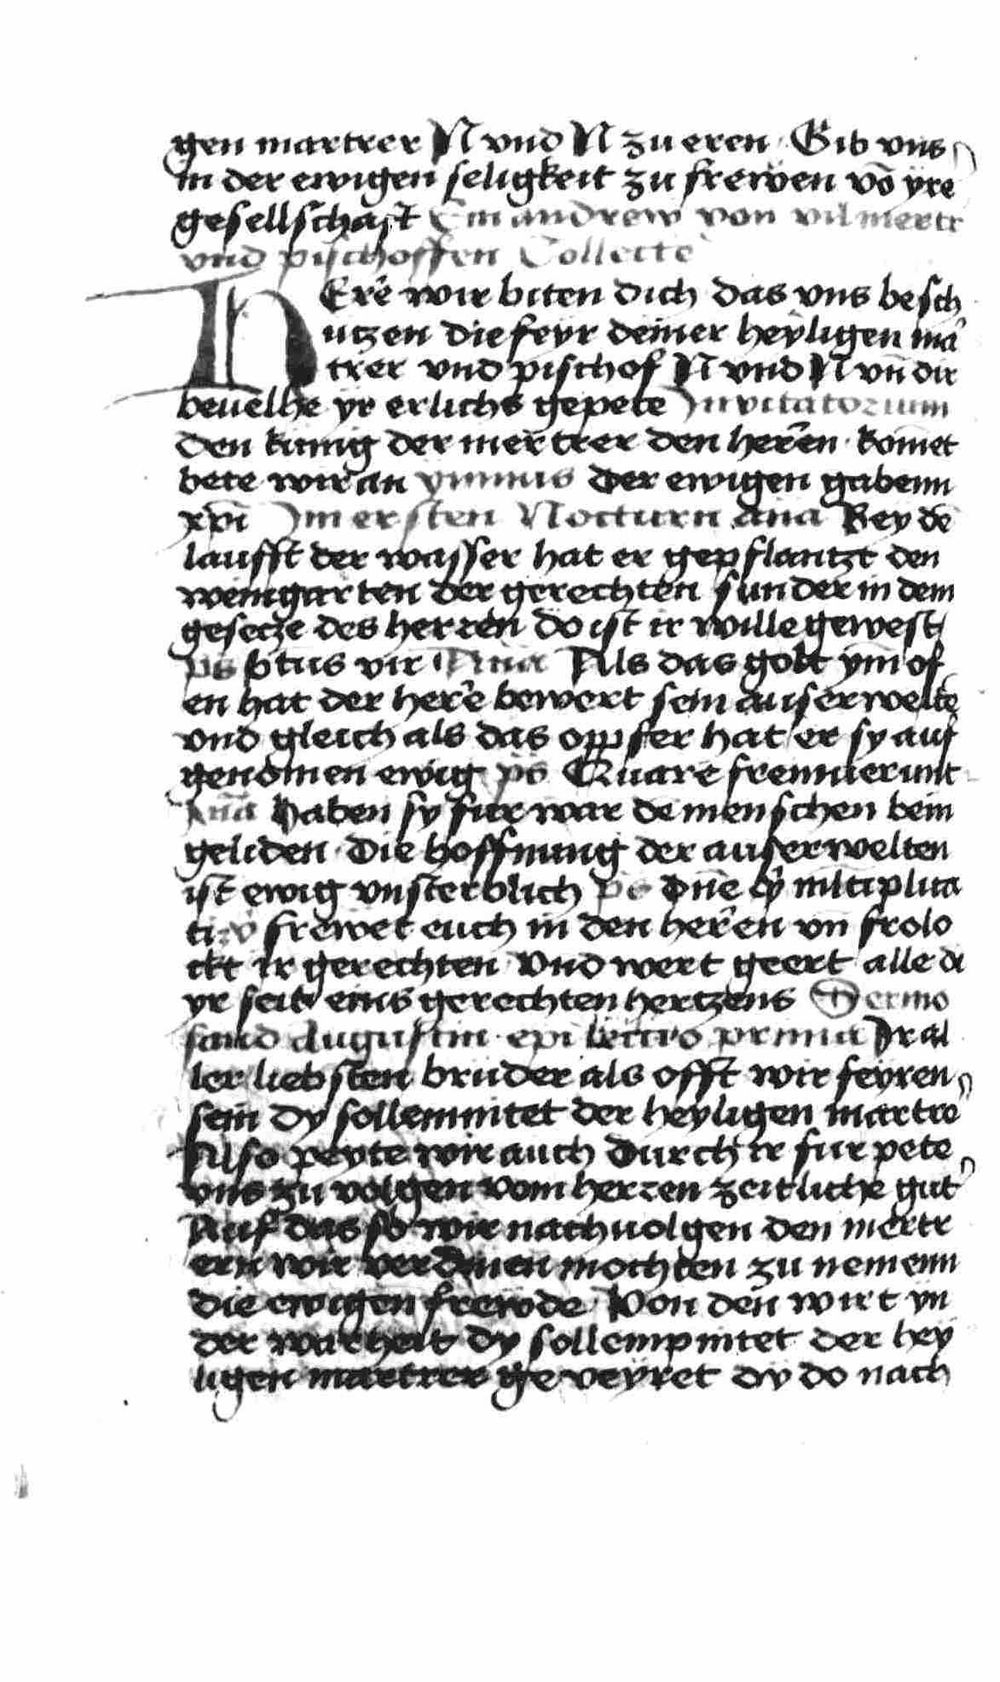 gen martrer N vnd N zu eren · Gib vns
in der ewigen seligkeit zu frewen vō yre
gesellschaft Ein andrew von vil mertr
vnd pischoffen Collecte
HErē wir biten dich das vns besch
utzen die feyr deiner heyligen ma
trer vnd pischof N vnd N vn̄ dir
beuelhe yr erlichs gepete Invitatorium
den kunig der mertrer den herēn · komet
bete wir an ymnus Der ewigen gabenn
xvi Im ersten Nocturn ana Bey dē
laufft der wasser hat er gepflantzt den
weingarten der gerechten sunder in dem
gesetze des herren do ist ir wille gewest
ps btūs vir Ana Als das golt ym of
en hat der herē bewert sein auserwelte
vnd gleich als das oppfer hat er sy auf
genomen ewig ps Quare fremuerunt
Ana Haben sy fur war de menschen bein
geliden · Die hoffnung der auserwelten
ist ewig vnsterblich ps Dn̄e q̄ mltiplica
ti v̄ frewet euch in den herēn vn̄ frolo
ckt ir gerechten Vnd wert geert alle di
yr seit eins gerechten hertzens Sermo
sand Augustin epi lectio prima Ir al
ler liebsten bruder als offt wir feyren
sein dy sollemnitet der heyligen martre
Also peyte wir auch durch ir fur pete
vns zu volgen vom herren zeitliche gut
Auf das so wir nachuolgen den mertr
ern wir verdinen mochten zu nemenn
die ewigen frewde Von den wirt yn
der warheit dy sollempnitet der hey
ligen martrer ge veyret dy do nach